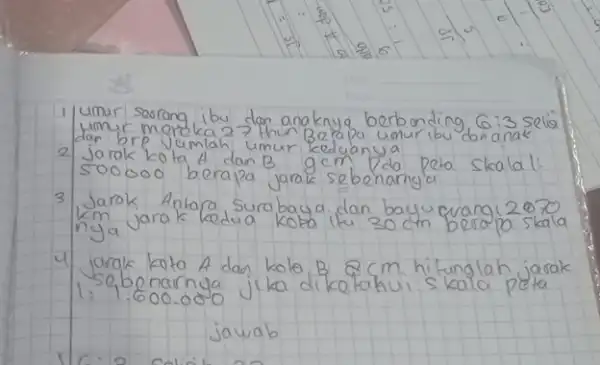 1 umur saorang ibu dan anaknya berbanding 6:3 selis
umur mereka 27 thun Berapa umur ibu dan anak
dan brp Jumlah umur keduanya
2 jarak kota A dan B 9cm pda peta skala 1:
500000 berapa jarak sebenarnya
3 Jarak Antara Surabaya dan bayuwangi 2070
km jarak kedua kota itu 20 cm berapa skala
nya
4 jarak kota A dan kota B 8 cm hitunglah jarak
sebenarnya jika diketahui skala peta
1: 1.600.000
jawab